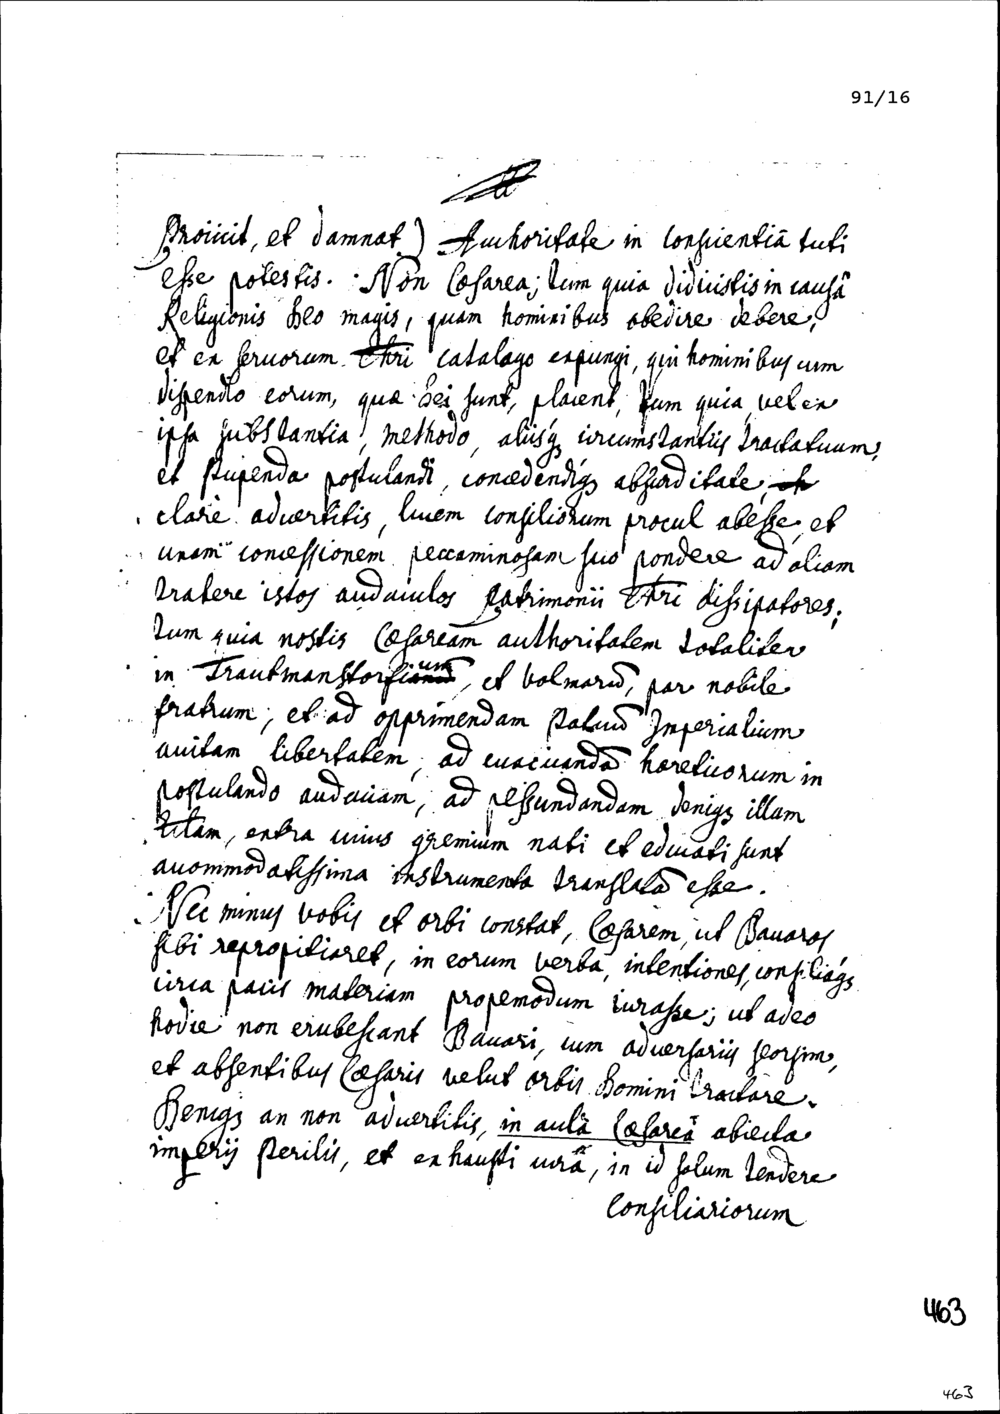 91/16
Proiicit, et damnat) Authoritate in conscientiâ tuti
esse potestis. Non Cæsarea; tum quia didicistis in causâ
Religionis Deo magis, quam hominibus obedire debere,
et ex seruorum Chri catalago expungi, qui hominibus cum
dispendio eorum, quæ Dei sunt, placent, tum quia vel ex
ipsa substantia, methodo, aliisq; circumstantiis tractatuum,
et stupenda postulandi, concedendiq; absurditate,
clarè aduertitis, lucem consiliorum procul abesse, et
unam concessionem peccaminosam suo pondere ad aliam
trahere istos audaculos patrimonii Chri dissipatores;
tum quia nostis Cæsaream authoritatem totaliter
in Trautmanstorfium, et Volmarũ, par nobile
fratrum, et ad opprimendam Statuũ Imperialium
auitam libertatem, ad euacuandã hæreticorum in
postulando audaciam, ad pessundandam deniq; illam
, extra cuius gremium nati et educati sunt
accommodatissima instrumenta translatã esse.
Nec minus vobis et orbi constat, Cæsarem, ut Bauaros
sibi repropitiaret, in eorum verba, intentiones, consiliaq;
circa pacis materiam propemodum iurasse; ut adeo
hodie non erubescant Bauari, cum aduersariis seorsim,
et absentibus Cæsaris velut orbis Domini tractare.
Deniq; an non aduertitis, in aulâ Cæsareâ abiecta
imperij sterilis, et exhausti curâ, in id solum tendere
Consiliariorum
463
463